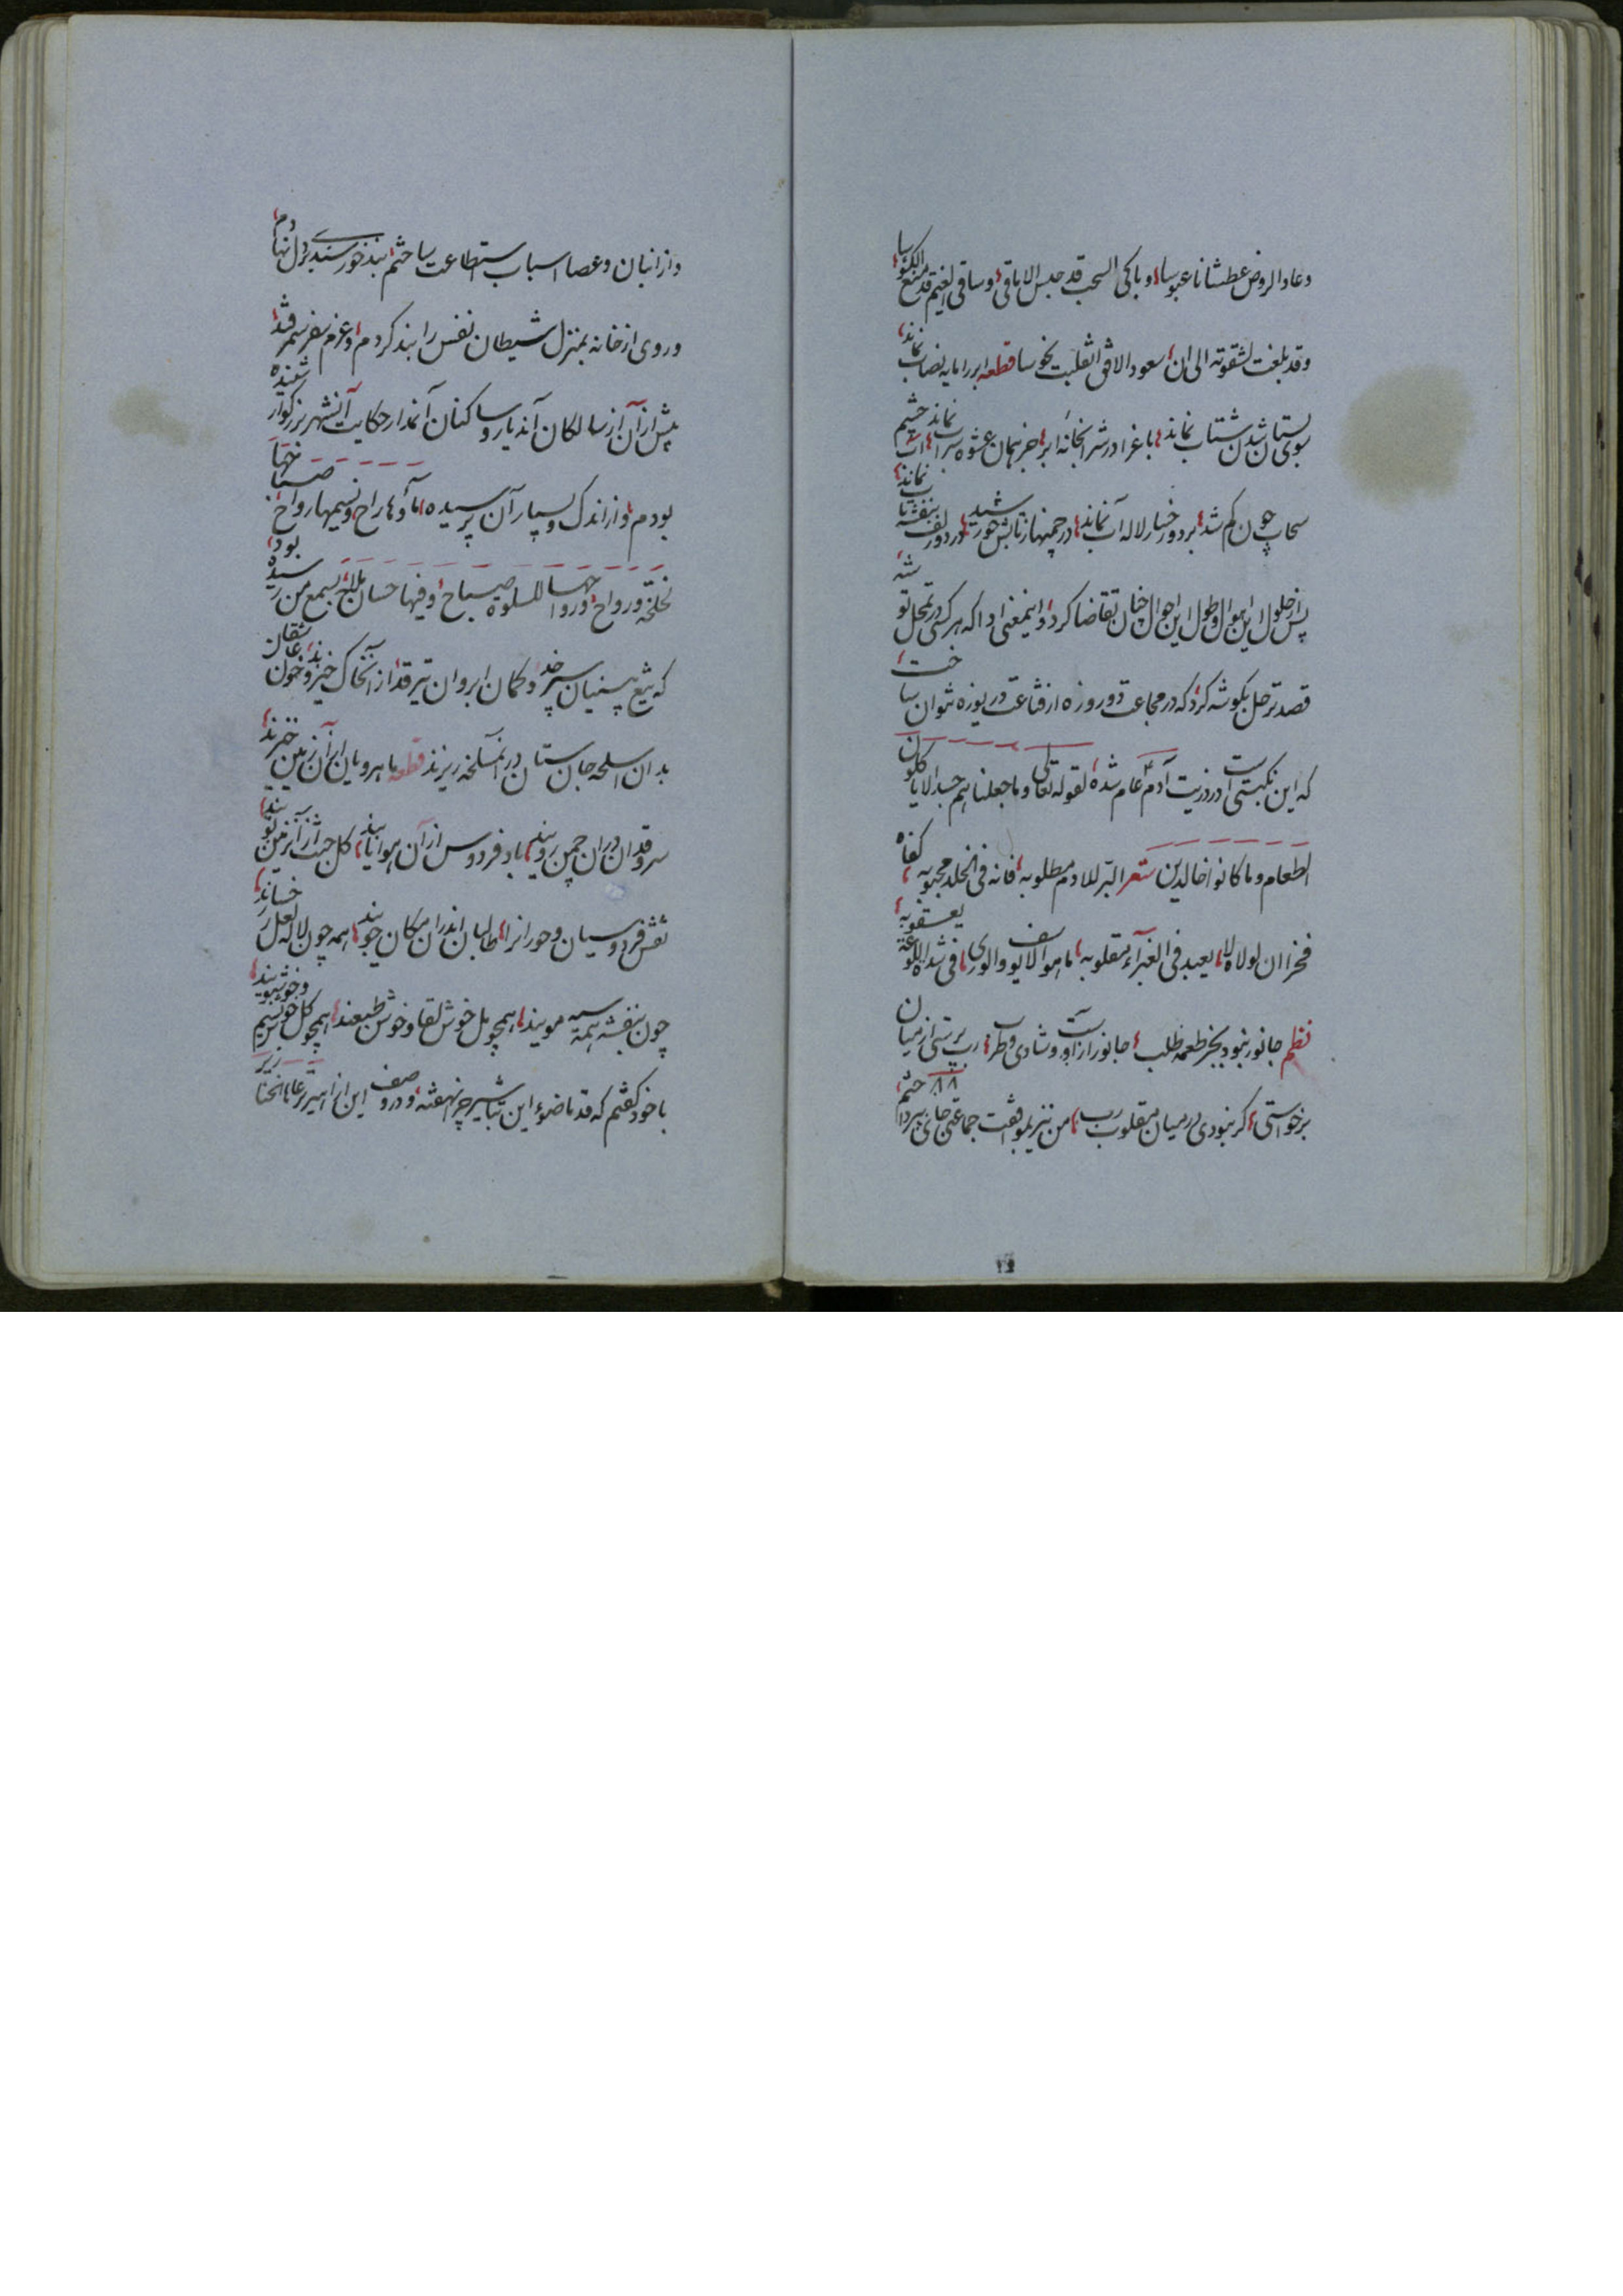 وعاد الروض عطشانا عبوسا، وباکی السحب قد حبس الاماقی، وساقی الغیم قد منع الکئوسا،
وقد بلغت لشقوته الی ان، سعود الافق انقلبت نحوسا قطعه ابر را مایه نصاب نماند،
سوی بستان شدن شتاب نماند، باغرا در شرابخانه ابر، جز همان عشوه سراب نماند، چشم
سحاب چون کم شد، بر دو رخسار لاله آب نماند، در چمنها ز تابش خورشید، در دو زلف بنفشه تاب نماند،
پس از حلول این اهوال وطول این احوال چنان تقاضا کرد، واینمعنی ادا که هر کسی در تمحل توشه
قصد ترحل بگوشه کرد، که در مجاعت دو روزه از قناعت دریوزه نتوان ساخت،
که این نکبتی است در ذریت آدم عام شده، لقوله تعالی وما جعلناهم جسدا لا یاکلون
الطعام وما کانوا خالدین شعر البر للآدم مطلوبه، فانه فی الخلد محبوبه، کفاه
فخرا ان لولاه لا، یعبد فی الغبراء مقلوبه، ما هو الا یوسف والوری، فی شدة اللوعة یعقوبه،
نظم جانور نبود بجز طعمه طلب، جانور را زاوست وشادی وطرب، رب پرستی از میان
برخواستی، گر نبودی در میان مقلوب رب، من نیز بموافقت جماعتی جای بپرداختم،
واز انبان وعصا اسباب استطاعت ساختم، بند خورسندی بر دل نهادم،
وروی از خانه بمنزل شیطان نفس را بند کردم، وعزم سفر سمرقند،
پیش از آن از سالکان آندیار وساکنان آندار حکایت آنشهر بزرگوار شنیده
بودم، واز اندک وبسیار آن پرسیده، ماؤها راح، ونسیمها رواح، صباحها
نخلخه ورواح، ورواحها للسلوة صباح، وفیها حسان ملاح، بسمع من رسیده بود،
که تیغ پشنیان سرخد، وکمان ابروان تیر قد، از آنخاک خیزند، وخون عاشقان
بدان اسلحه جان ستان در آنمسلخه ریزند قطعه ماهرویان ازآن زمین خیزند،
سروقدان در آن چمن رویند، باد فردوس از آن هوا یابند، گل جنت از آنزمین بویند،
نقش فردوسیان وحورانرا، طالبان اندران مکان جویند، همه چون لاله لعل رخسارند،
چون بنفشه همه سیه مویند، همچو مل خوش لقا وخوش طبعند، همچو گل خوش نسیم وخوشبویند،
با خود گفتم که قدما ضوء این تباشیر چرا نهفته، ودر وصف این از امیر رعاها تختار